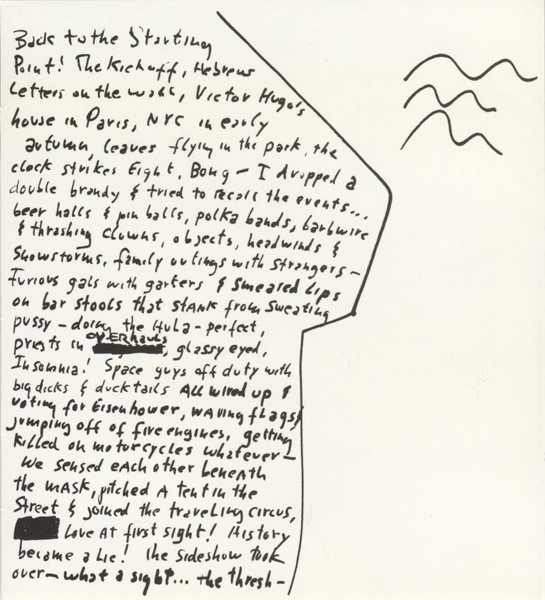 Back to the Starting
Point! The Kickoff, Hebrew
Letters on the wall, Victor Hugo's
house in Paris, NYC in early
autumn, leaves flying in the park, the
clock strikes Eight, Bong — I dropped a
double brandy & tried to recall the events...
beer halls & pin balls, polka bands, barbwire
& thrashing clowns, objects, headwinds &
snowstorms, family outings with strangers —
Furious gals with garters & smeared lips
on bar stools that stank from sweating
pussy — doing the Hula — perfect,
priests in overhauls, glassy eyed,
Insomnia! Space guys off duty with
big dicks & duck tails All wired up &
voting for Eisenhower, waving flags,
jumping off of fire engines, getting
killed on motorcycles whatever —
We sensed each other beneath
the mask, pitched a tent in the
Street & joined the traveling circus,
Love At first sight! History
became a Lie! The sideshow took
over — what a sight... the thresh-